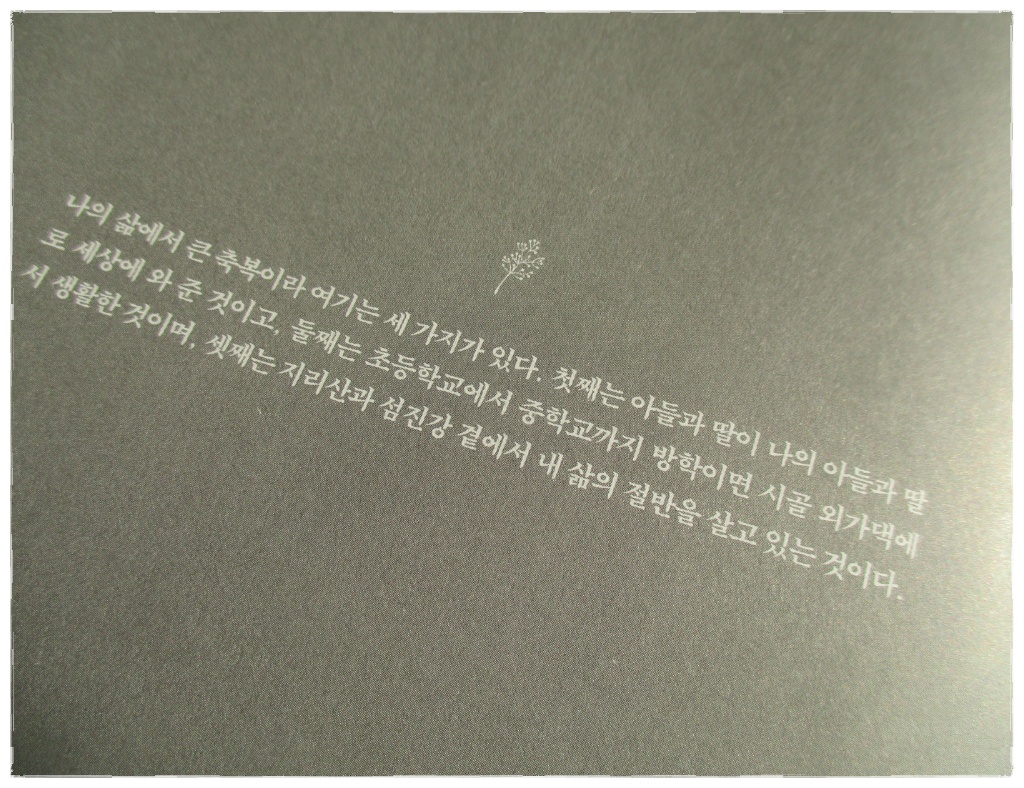 나의 삶에서 큰 축복이라 여기는 세 가지가 있다. 첫째는 아들과 딸이 나의 아들과 딸
로 세상에 와 준 것이고, 둘째는 초등학교에서 중학교까지 방학이면 시골 외가댁에
서 생활한 것이며, 셋째는 지리산과 섬진강 곁에서 내 삶의 절반을 살고 있는 것이다.